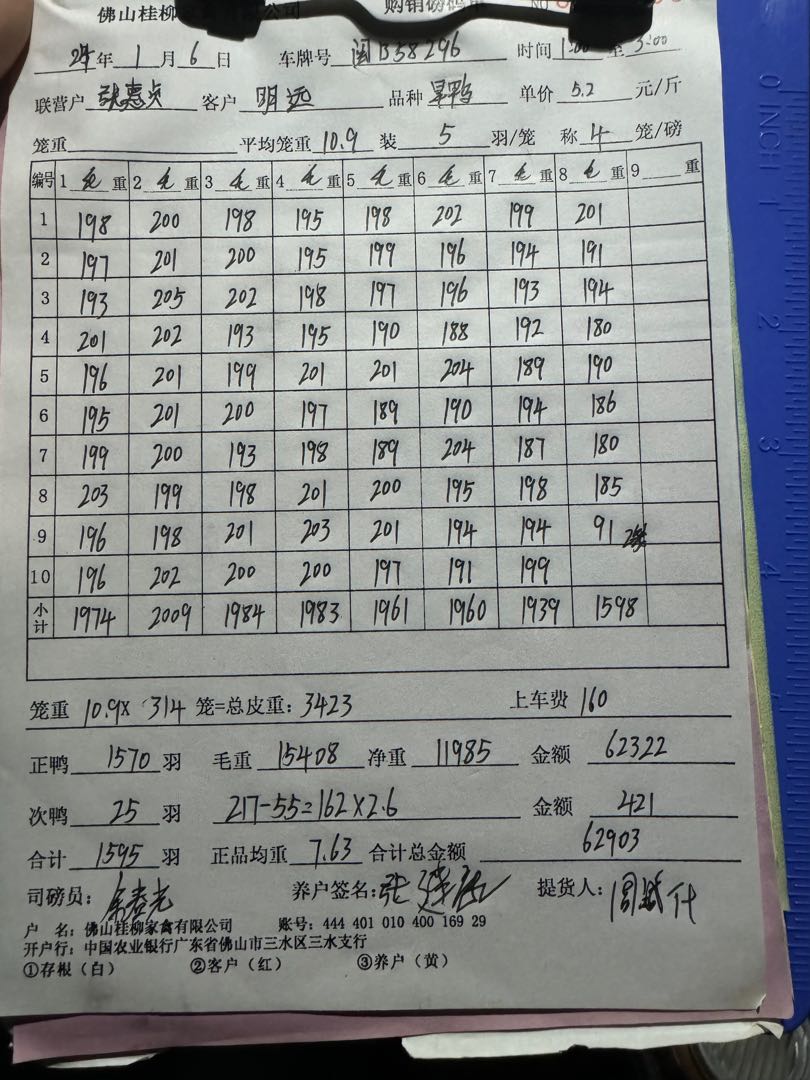 佛山桂柳家禽有限公司 购销磅码单 NO
24年 1 月 6 日 车牌号 闽B58296 时间 1:00 至 3:00
联营户 张惠贞 客户 明远 品种 旱鸭 单价 5.2 元/斤
笼重 平均笼重 10.9 装 5 羽/笼 称 4 笼/磅
编号 1 毛 重 2 毛 重 3 毛 重 4 毛 重 5 毛 重 6 毛 重 7 毛 重 8 毛 重 9 重
1 198 200 198 195 198 202 199 201
2 197 201 200 195 199 196 194 191
3 193 205 202 198 197 196 193 194
4 201 202 193 195 190 188 192 180
5 196 201 199 201 201 204 189 190
6 195 201 200 197 189 190 194 186
7 199 200 193 198 189 204 187 180
8 203 199 198 201 200 195 198 185
9 196 198 201 203 201 194 194 91 2笼
10 196 202 200 200 197 191 199
小计 1974 2009 1984 1983 1961 1960 1939 1598
笼重 10.9× 314 笼=总皮重: 3423 上车费 160
正鸭 1570 羽 毛重 15408 净重 11985 金额 62322
次鸭 25 羽 217-55=162×2.6 金额 421
合计 1595 羽 正品均重 7.63 合计总金额 62903
司磅员: 养户签名: 张 提货人: 周
户 名: 佛山桂柳家禽有限公司 账号: 444 401 010 400 169 29
开户行: 中国农业银行广东省佛山市三水区三水支行
①存根(白) ②客户(红) ③养户(黄)
0 INCH 1 2 3 4